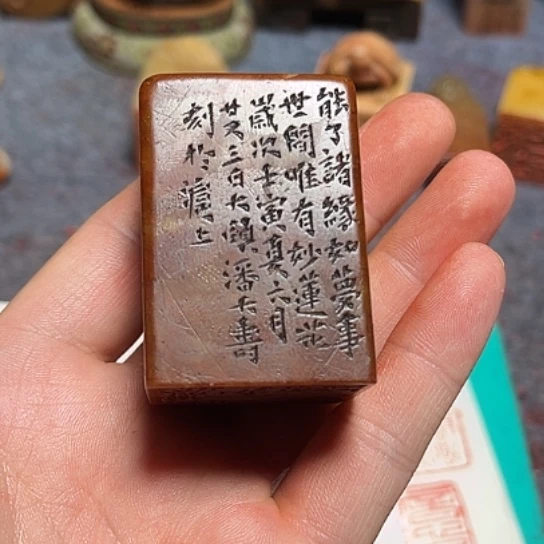 能了諸緣如夢事
世間唯有妙蓮花
歲次壬寅夏六月
廿又三日大頤潘天壽
刻於滬上